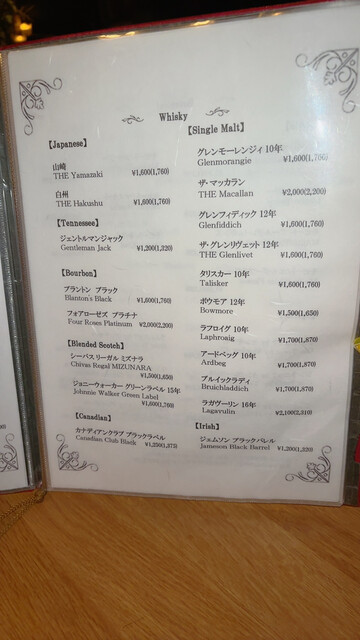 Whisky
【Japanese】
山崎
THE Yamazaki ¥1,600(1,760)
白州
THE Hakushu ¥1,600(1,760)
【Tennessee】
ジェントルマンジャック
Gentleman Jack ¥1,200(1,320)
【Bourbon】
ブラントン ブラック
Blanton's Black ¥1,600(1,760)
フォアローゼズ プラチナ
Four Roses Platinum ¥2,000(2,200)
【Blended Scotch】
シーバス リーガル ミズナラ
Chivas Regal MIZUNARA
¥1,500(1,650)
ジョニーウォーカー グリーンラベル 15年
Johnnie Walker Green Label
¥1,600(1,760)
【Canadian】
カナディアンクラブ ブラックラベル
Canadian Club Black ¥1,250(1,375)
【Single Malt】
グレンモーレンジィ 10年
Glenmorangie ¥1,600(1,760)
ザ・マッカラン
THE Macallan ¥2,000(2,200)
グレンフィディック 12年
Glenfiddich ¥1,600(1,760)
ザ・グレンリヴェット 12年
THE Glenlivet ¥1,600(1,760)
タリスカー 10年
Talisker ¥1,600(1,760)
ボウモア 12年
Bowmore ¥1,500(1,650)
ラフロイグ 10年
Laphroaig ¥1,700(1,870)
アードベッグ 10年
Ardbeg ¥1,700(1,870)
ブルイックラディ
Bruichladdich ¥1,700(1,870)
ラガヴーリン 16年
Lagavulin ¥2,100(2,310)
【Irish】
ジェムソン ブラックバレル
Jameson Black Barrel ¥1,200(1,320)